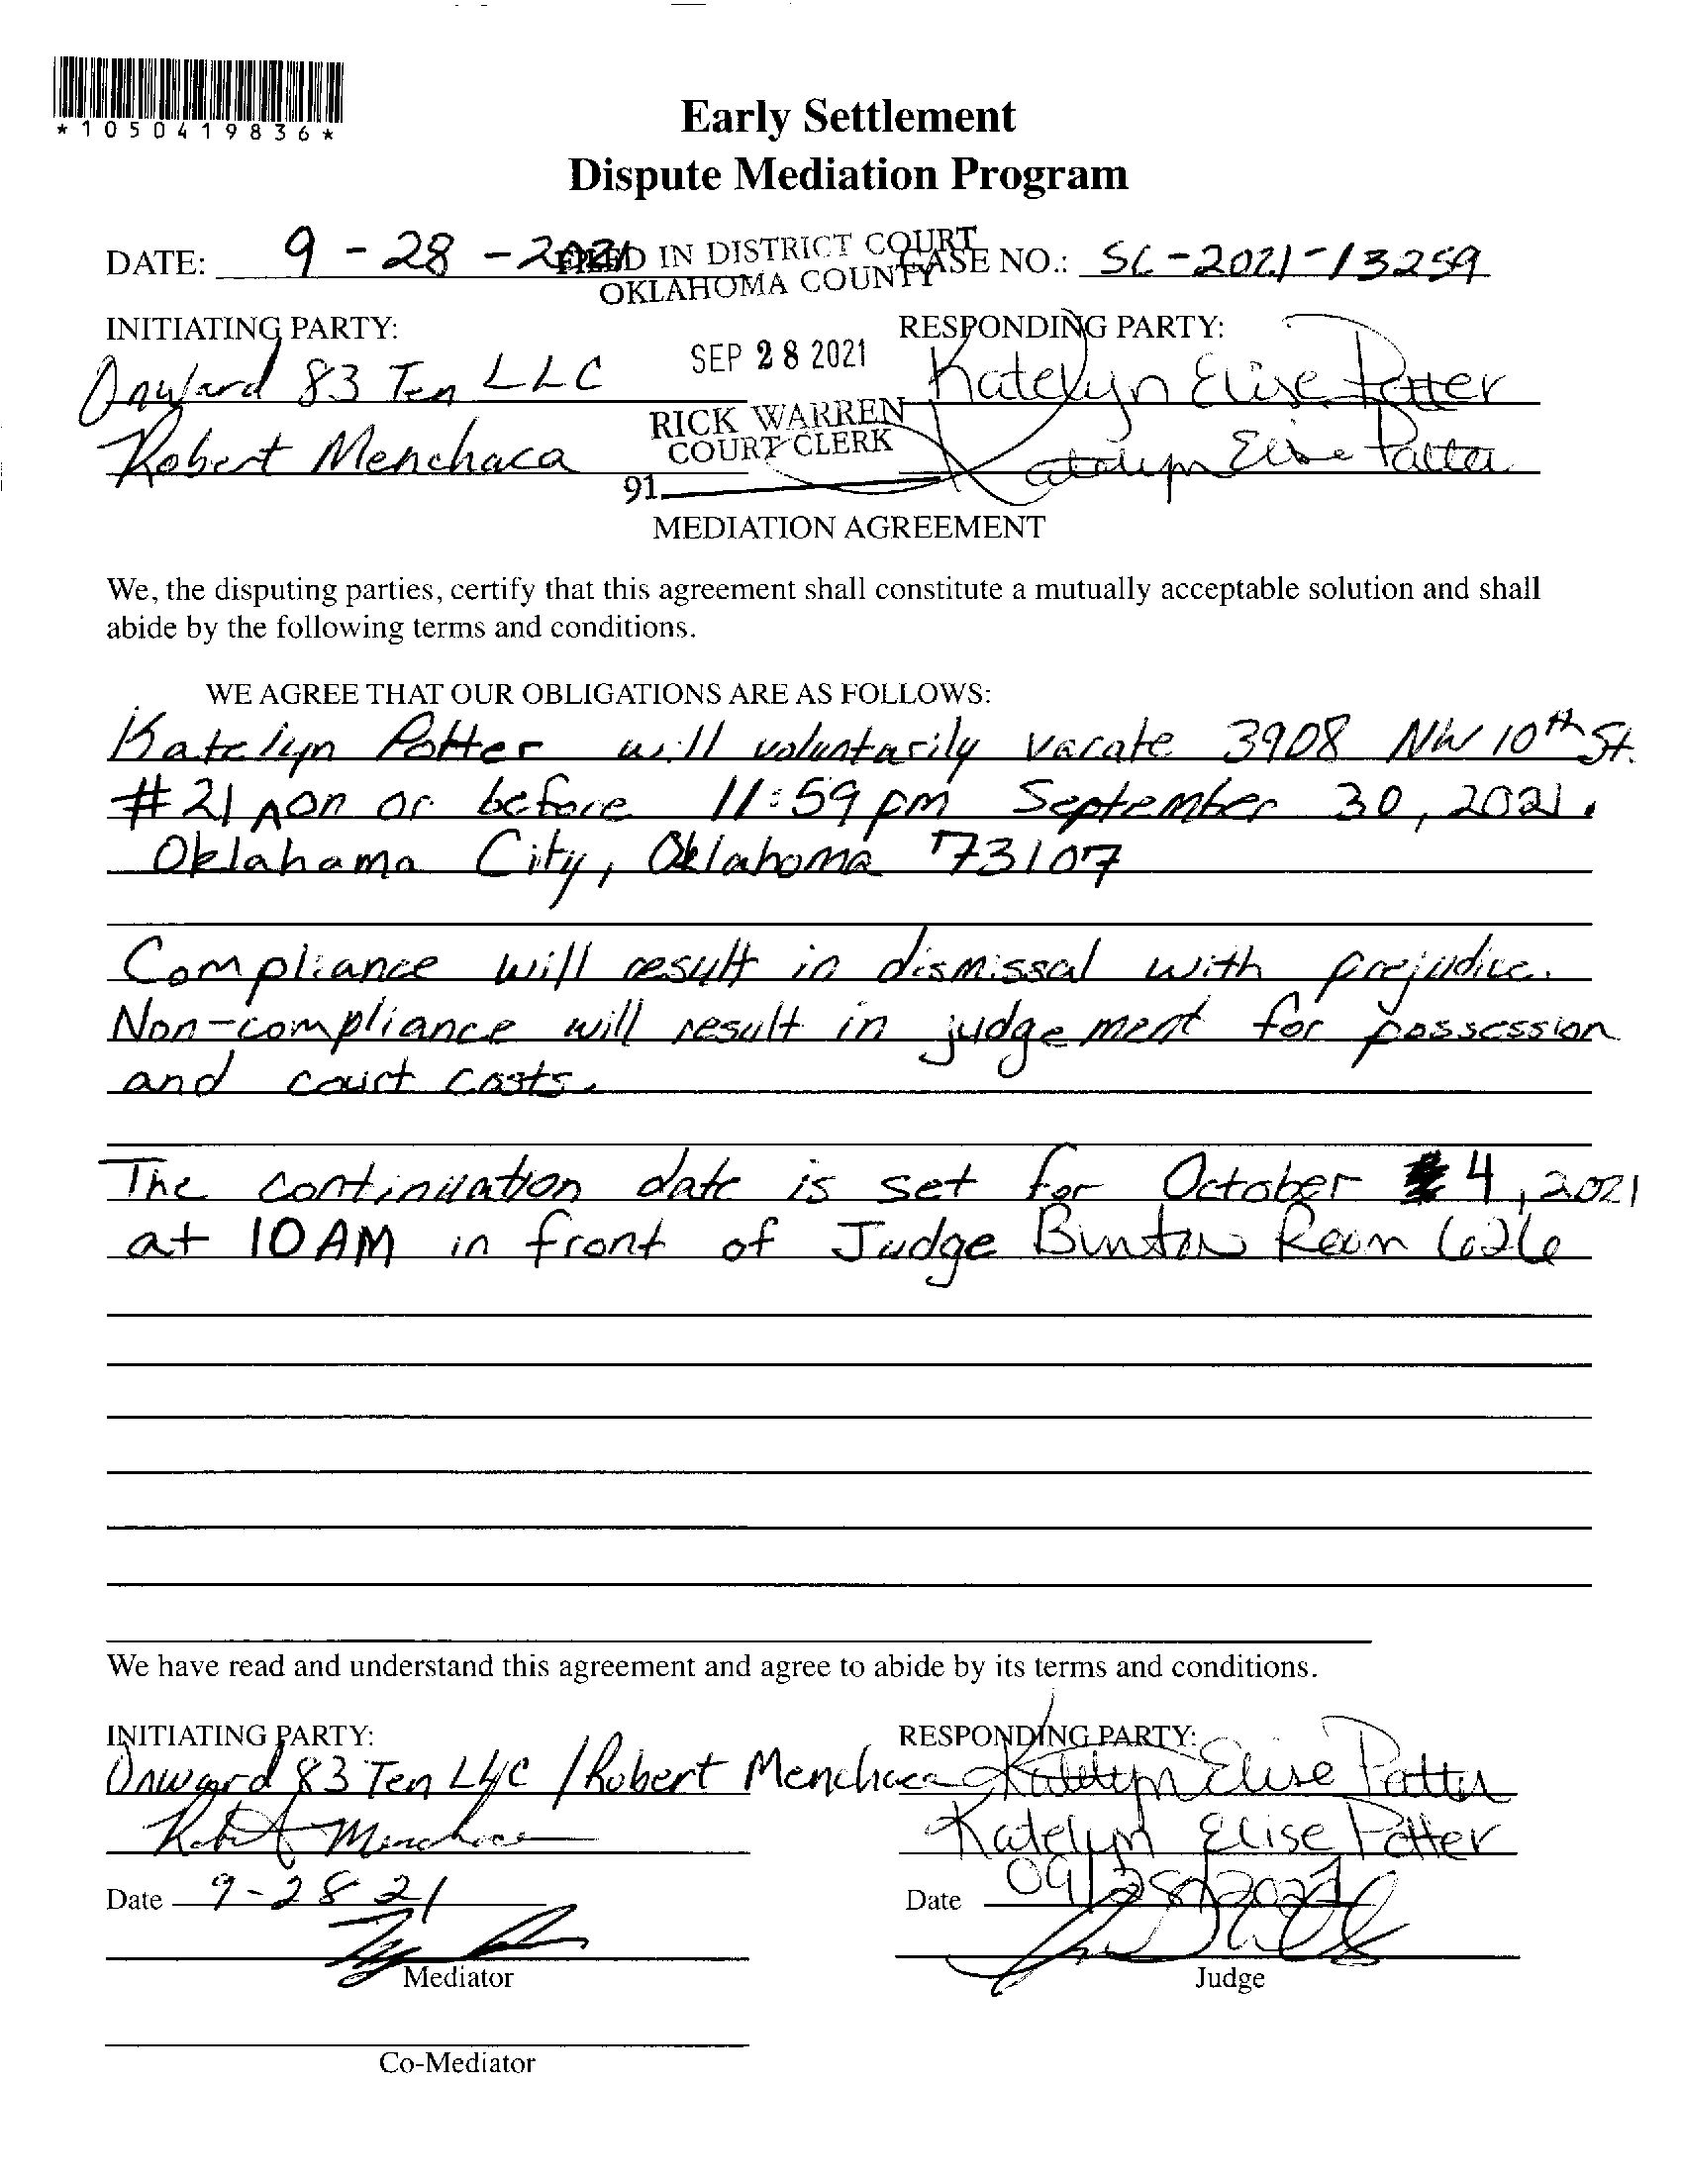 *1050419836*
Early Settlement
Dispute Mediation Program
DATE: 9-28-2021 CASE NO.: SC-2021-13259
FILED IN DISTRICT COURT
OKLAHOMA COUNTY
INITIATING PARTY: RESPONDING PARTY:
SEP 28 2021
Onward 83 Ten LLC Katelyn Elise Potter
RICK WARREN
COURT CLERK
Robert Menchaca Katelyn Elise Potter
91
MEDIATION AGREEMENT
We, the disputing parties, certify that this agreement shall constitute a mutually acceptable solution and shall
abide by the following terms and conditions.
WE AGREE THAT OUR OBLIGATIONS ARE AS FOLLOWS:
Katelyn Potter will voluntarily vacate 3908 NW 10th St.
#21 ^ on or before 11:59 pm September 30, 2021.
Oklahoma City, Oklahoma 73107
Compliance will result in dismissal with prejudice.
Non-compliance will result in judgement for possession
and court costs.
The continuation date is set for October 4, 2021
at 10 AM in front of Judge Room 626
We have read and understand this agreement and agree to abide by its terms and conditions.
INITIATING PARTY: RESPONDING PARTY:
Onward 83 Ten LLC / Robert Menchaca Katelyn Elise Potter
Robert Menchaca Katelyn Elise Potter
Date 9-28 21 Date 09/28/2021
Mediator Judge
Co-Mediator